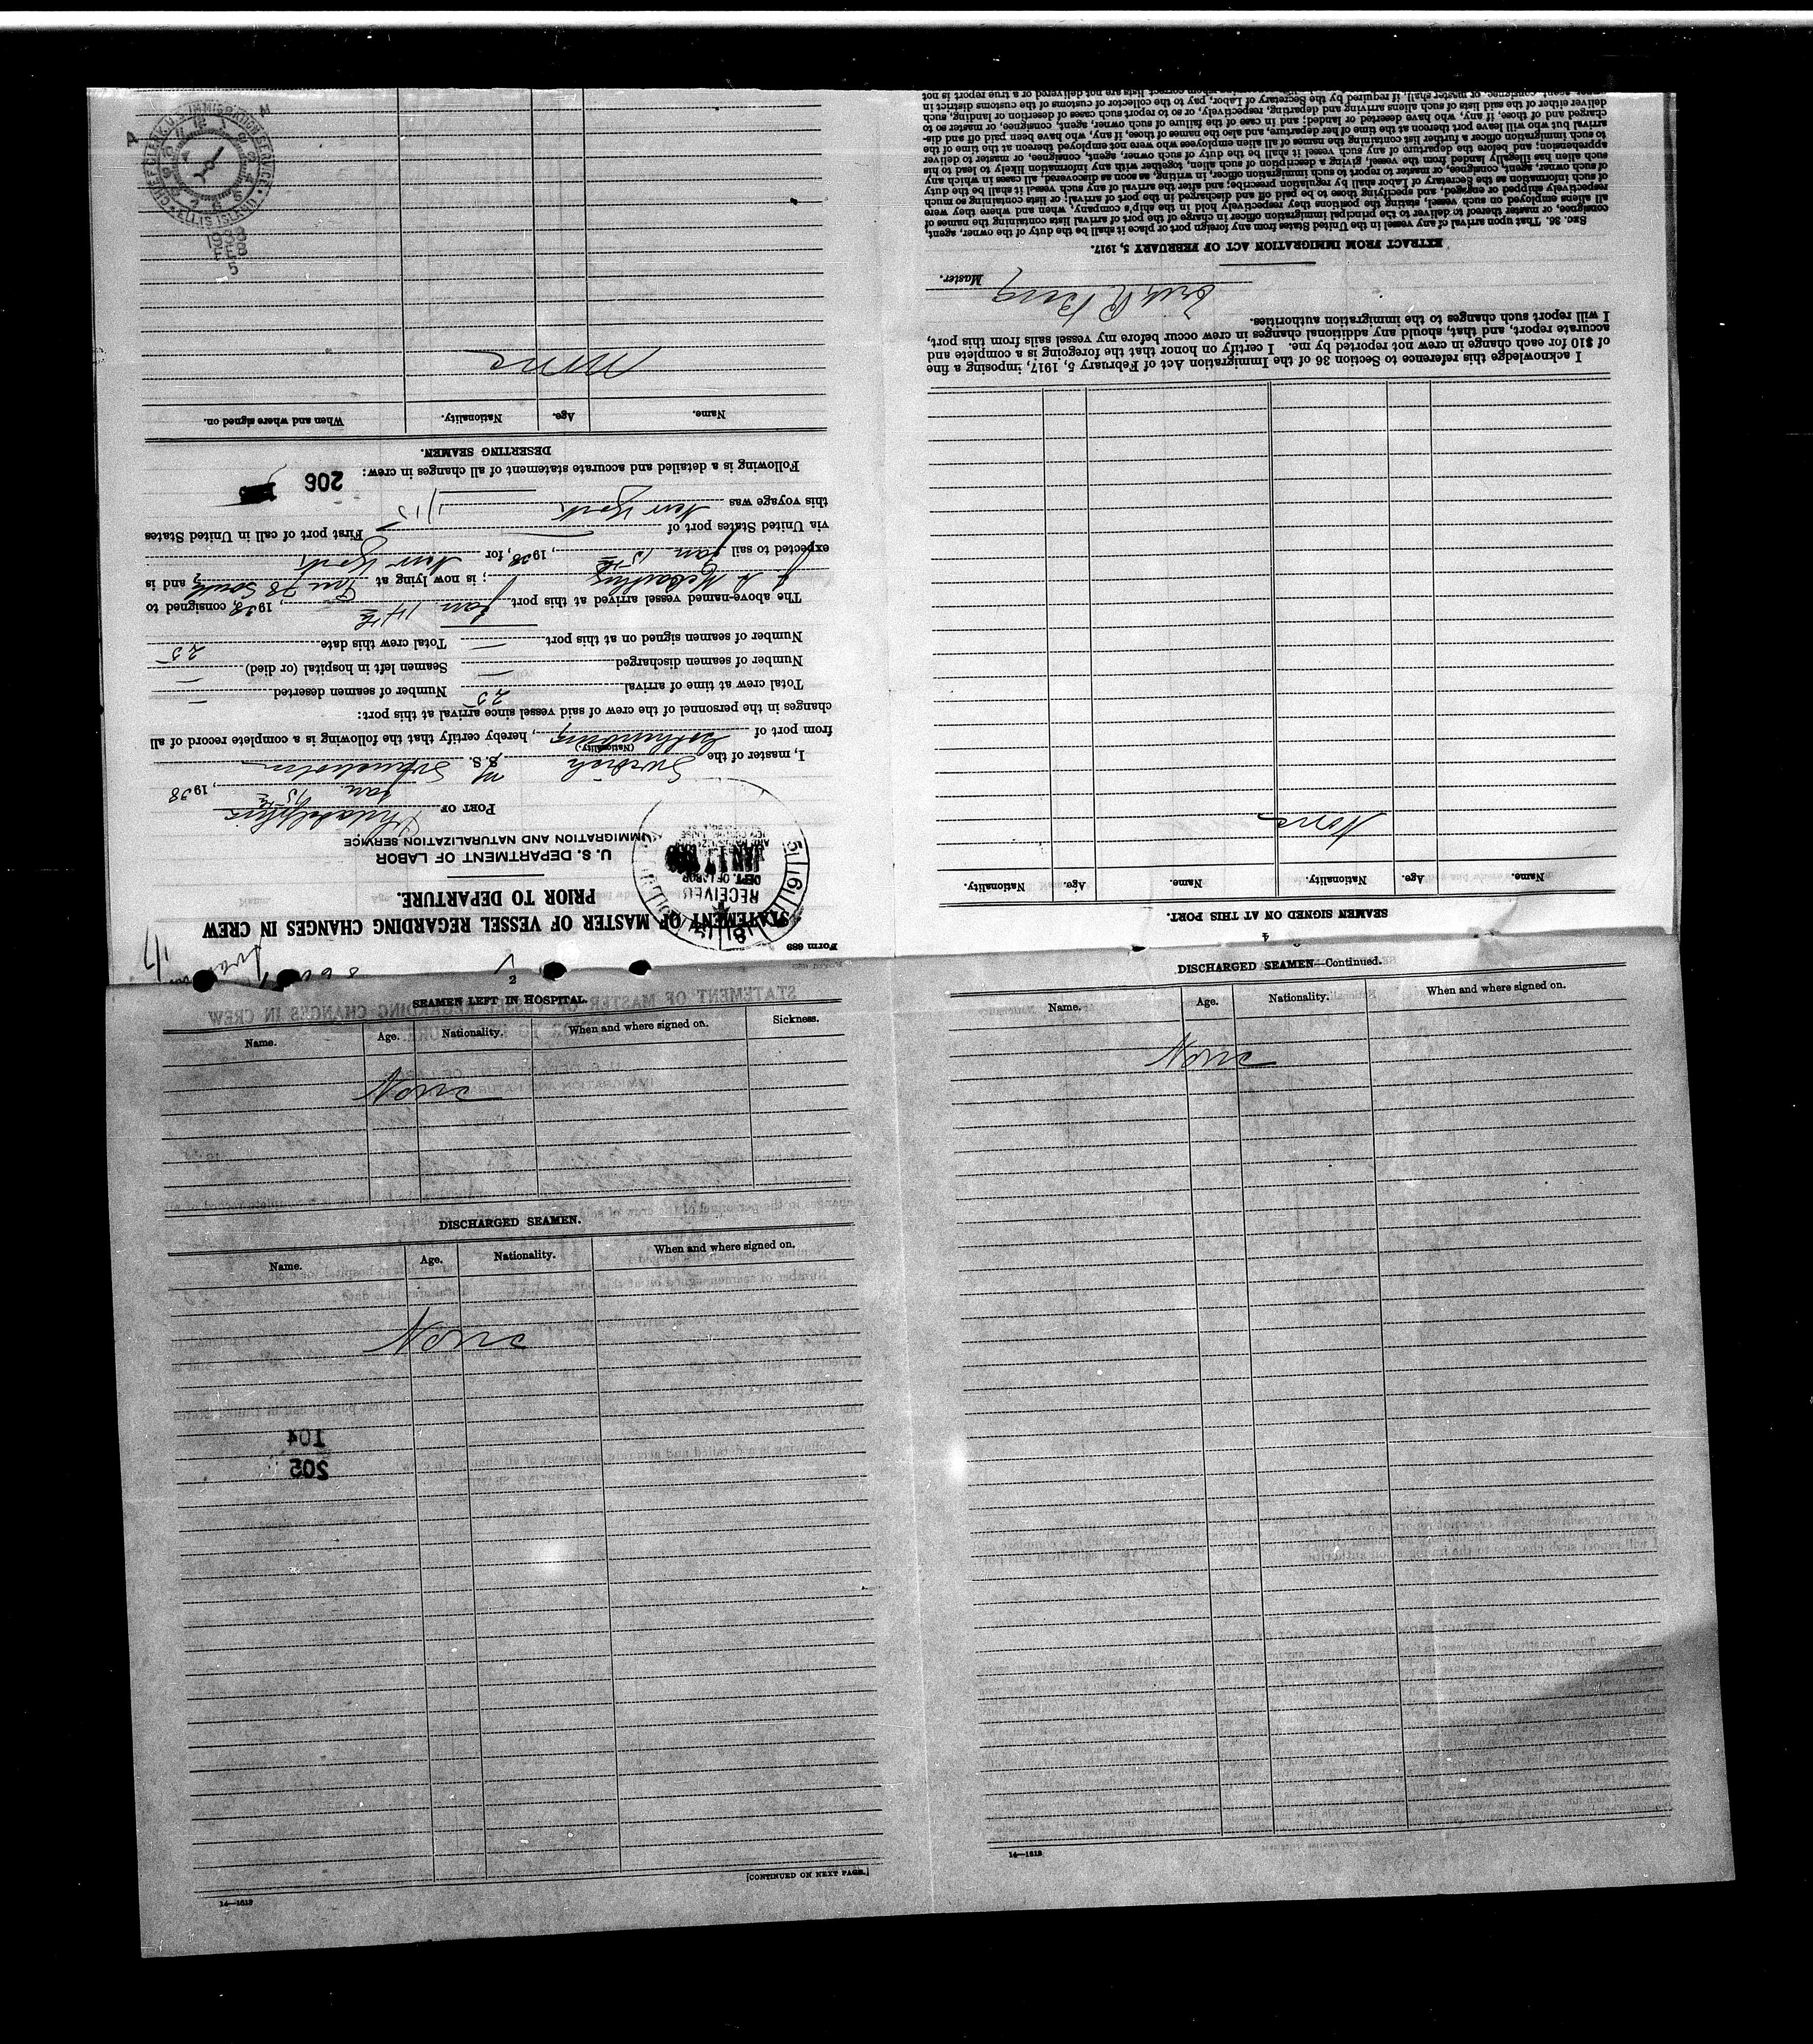 Form 689
STATEMENT OF MASTER OF VESSEL REGARDING CHANGES IN CREW
PRIOR TO DEPARTURE.
U. S. DEPARTMENT OF LABOR
IMMIGRATION AND NATURALIZATION SERVICE
RECEIVED
DEPT. OF LABOR
PORT OF Philadelphia
Jan. 15th, 1938
I, master of the Swedish M S.S.
(Nationality.)
from port of Gothenburg, hereby certify that the following is a complete record of all
changes in the personnel of the crew of said vessel since arrival at this port:
Total crew at time of arrival 25 Number of seamen deserted —
Number of seamen discharged — Seamen left in hospital (or died) —
Number of seamen signed on at this port — Total crew this date 25
The above-named vessel arrived at this port Jan. 14th, 1938, consigned to
; is now lying at Pier 78 South, and is
expected to sail Jan 15th, 1938, for New York
via United States port of — First port of call in United States
this voyage was New York 1/13
Following is a detailed and accurate statement of all changes in crew:
206
DESERTING SEAMEN.
Name. Age. Nationality. When and where signed on.
None
CHIEF CLERK U.S. IMMIGRATION SERVICE
ELLIS ISLAND
1938
FEB
5
2
SEAMEN LEFT IN HOSPITAL.
Name. Age. Nationality. When and where signed on. Sickness.
None
DISCHARGED SEAMEN.
Name. Age. Nationality. When and where signed on.
None
104
205
[CONTINUED ON NEXT PAGE.]
14—1613
DISCHARGED SEAMEN—Continued.
Name. Age. Nationality. When and where signed on.
None
14—1613
4
SEAMEN SIGNED ON AT THIS PORT.
Name. Age. Nationality. Name. Age. Nationality.
None
I acknowledge this reference to Section 36 of the Immigration Act of February 5, 1917, imposing a fine
of $10 for each change in crew not reported by me. I certify on honor that the foregoing is a complete and
accurate report, and that, should any additional changes in crew occur before my vessel sails from this port,
I will report such changes to the immigration authorities.
Berg
Master.
EXTRACT FROM IMMIGRATION ACT OF FEBRUARY 5, 1917.
SEC. 36. That upon arrival of any vessel in the United States from any foreign port or place it shall be the duty of the owner, agent,
consignee, or master thereof to deliver to the principal immigration officer in charge of the port of arrival lists containing the names of
all aliens employed on such vessel, stating the positions they respectively hold in the ship's company, when and where they were
respectively shipped or engaged, and specifying those to be paid off and discharged in the port of arrival; or lists containing so much
of such information as the Secretary of Labor shall by regulation prescribe; and after the arrival of any such vessel it shall be the duty
of such owner, agent, consignee, or master to report to such immigration officer, in writing, as soon as discovered, all cases in which any
such alien has illegally landed from the vessel, giving a description of such alien, together with any information likely to lead to his
apprehension; and before the departure of any such vessel it shall be the duty of such owner, agent, consignee, or master to deliver
to such immigration officer a further list containing the names of all alien employees who were not employed thereon at the time of the
arrival but who will leave port thereon at the time of her departure, and also the names of those, if any, who have been paid off and dis-
charged and of those, if any, who have deserted or landed; and in case of the failure of such owner, agent, consignee, or master so to
deliver either of the said lists of such aliens arriving and departing, respectively, or so to report such cases of desertion or landing, such
owner, agent, consignee, or master shall, if required by the Secretary of Labor, pay to the collector of customs of the customs district in
correct lists are not delivered or a true report is not